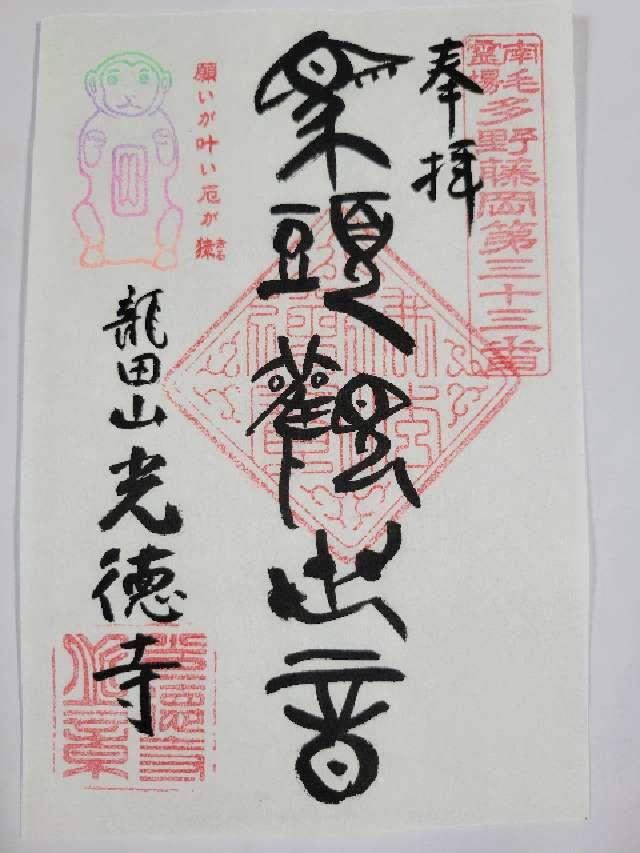 南毛
霊場
多野藤岡第三十三番
奉拝
馬頭觀世音
願いが叶い厄が猿
さる
龍田山光徳寺